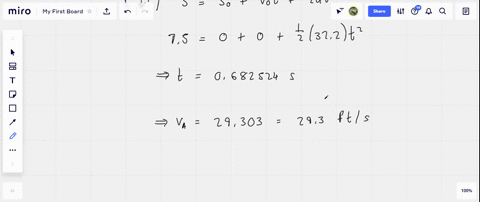 miro My First Board Share
S = S₀ + V₀t +
7.5 = 0 + 0 + 1/2 (32.2) t²
⇒ t = 0.682524 s
⇒ V_A = 29.303 = 29.3 ft/s
100%